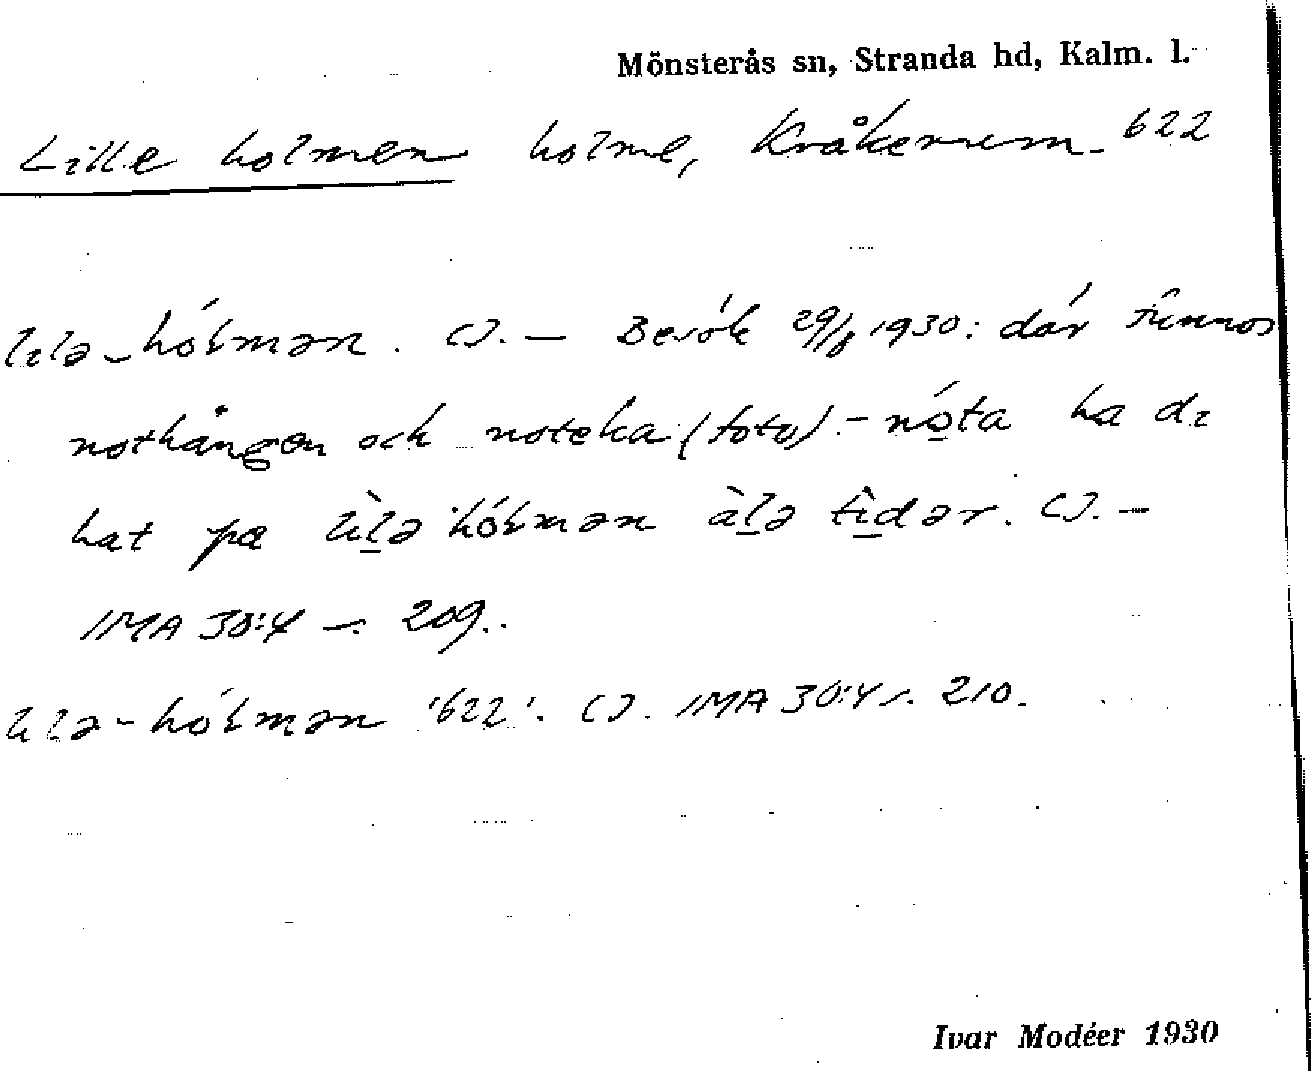 Mönsterås sn, Stranda hd, Kalm. l.
Lille holmen holme, Kråkerum. 622
lılə-hólmən. CJ. – Besök 29/8 1930: där finnos
nothängen och noteka (foto). – nóta ha dı
hat pa lìlə hólmən àlə tìdər. CJ. –
IMA 30:4 s. 209.
lılə-hólmən '622'. CJ. IMA 30:4 s. 210.
Ivar Modéer 1930